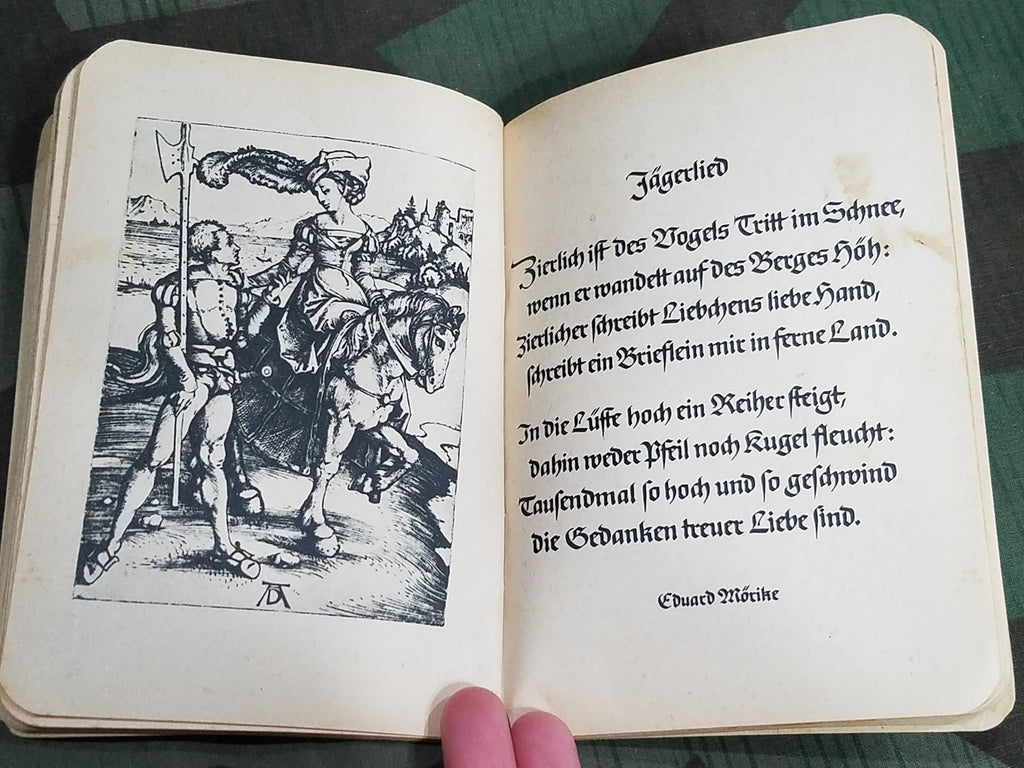 AD
Jägerlied
Zierlich ist des Vogels Tritt im Schnee,
wenn er wandelt auf des Berges Höh:
zierlicher schreibt Liebchens liebe Hand,
schreibt ein Brieflein mir in ferne Land.
In die Lüfte hoch ein Reiher steigt,
dahin weder Pfeil noch Kugel fleucht:
Tausendmal so hoch und so geschwind
die Gedanken treuer Liebe sind.
Eduard Mörike